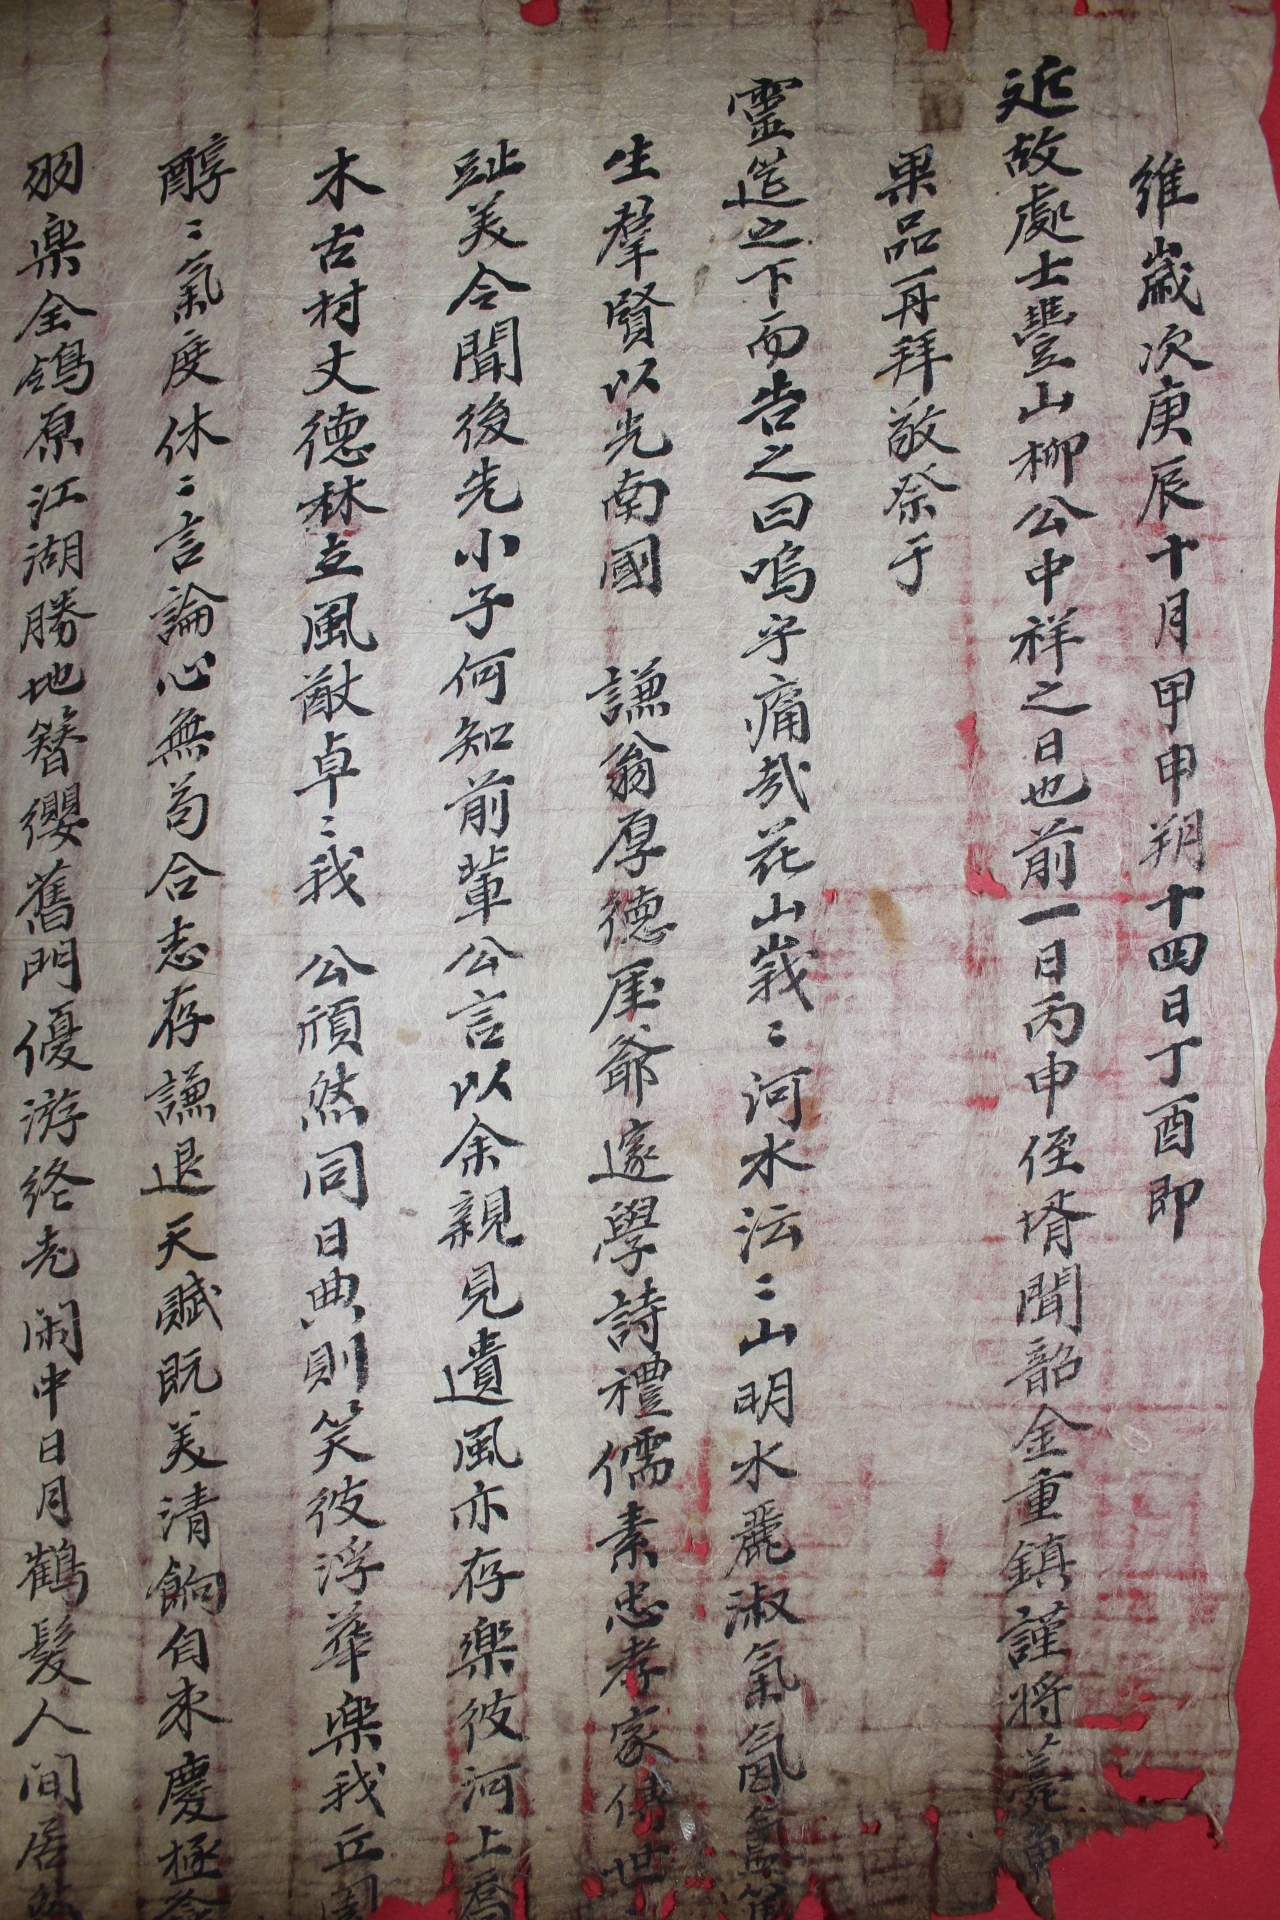 維歲次庚辰十月甲申朔十四日丁酉即
近故處士豊山柳公中祥之日也前一日丙申侄壻聞韶金重鎮謹將薧魚
果品再拜敬祭于
靈筵之下而告之曰嗚乎痛㦲花山峩〻河水沄〻山明水麗淑氣氤氳篤
生羣賢以光南國 謙翁厚德厓爺邃學詩禮儒素忠孝家傳世
趾美令聞後先小子何知前輩公言以余親見遺風亦存樂彼河上喬
木古村丈德林立風猷卓〻我 公頎然同日典則笑彼浮華樂我丘園
醇〻氣度休〻言論心無苟合志存謙退天賦既美清餉自來慶極
羽樂全鴒原江湖勝地簪纓舊門優游終老閑中日月鶴髮人間居